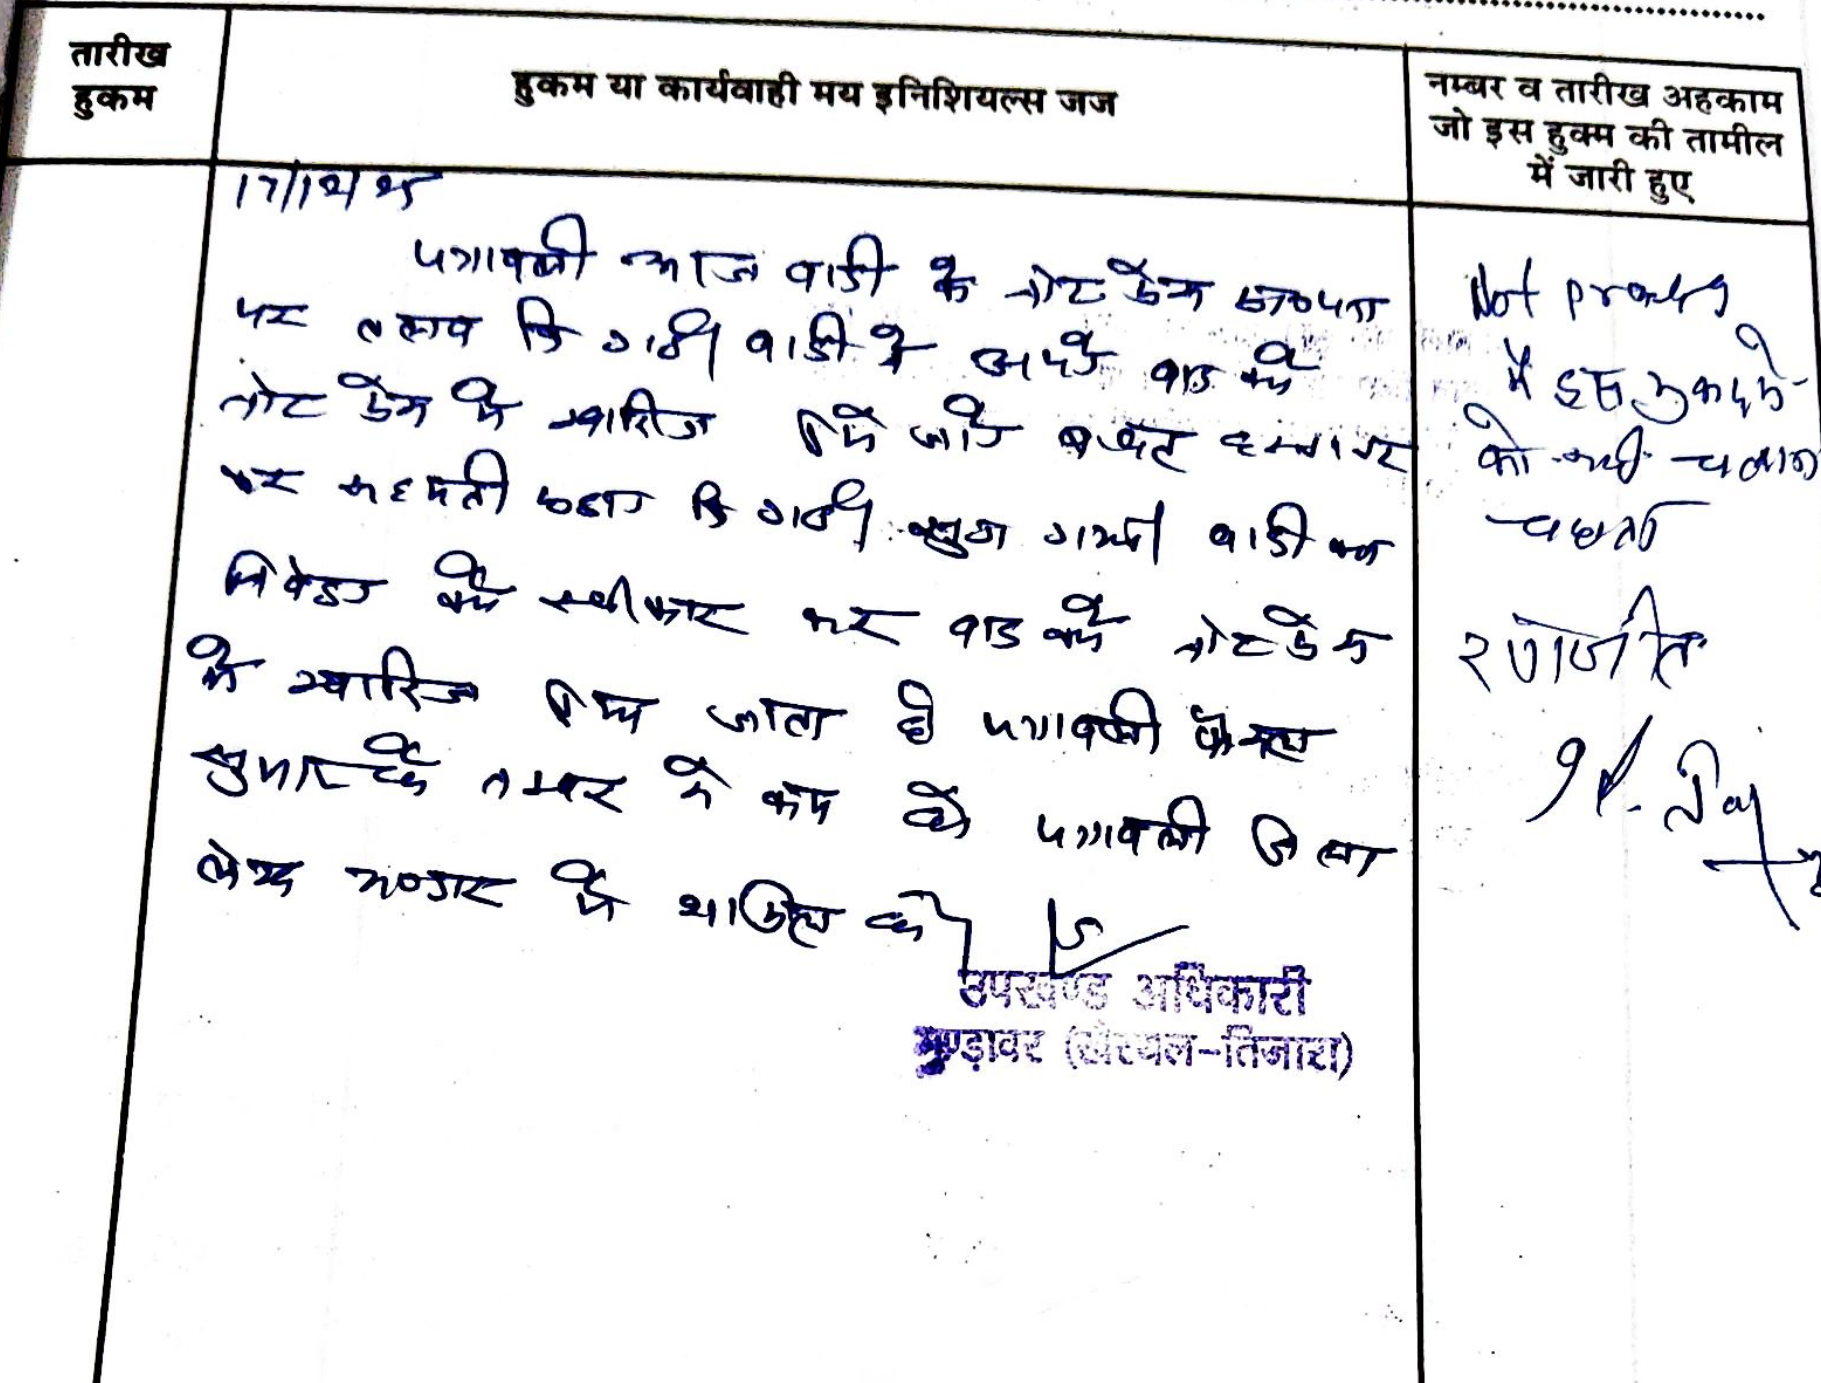 तारीख
हुकम
हुकम या कार्यवाही मय इनिशियल्स जज
नम्बर व तारीख अहकाम
जो इस हुक्म की तामील
में जारी हुए
17/12/25
पत्रावली आज वादी के नोट प्रेस
पर तलब कि गई। वादी ने अपने वाद को
नोट प्रेस में खारिज किये जाने बाबत हस्ताक्षर
कर सहमती कि गई। सुना गया। वादी का
निवेदन को स्वीकार कर वाद को नोट प्रेस
में खारिज किया जाता है पत्रावली फैसल
सुमार नम्बर से कम हो पत्रावली जिला
लेख भण्डार में दाखिल हो।
उपखण्ड अधिकारी
मुण्डावर (खैरथल-तिजारा)
Not press
मैं इस मुकदमे
को नहीं चलाना
चाहता
रणजीत